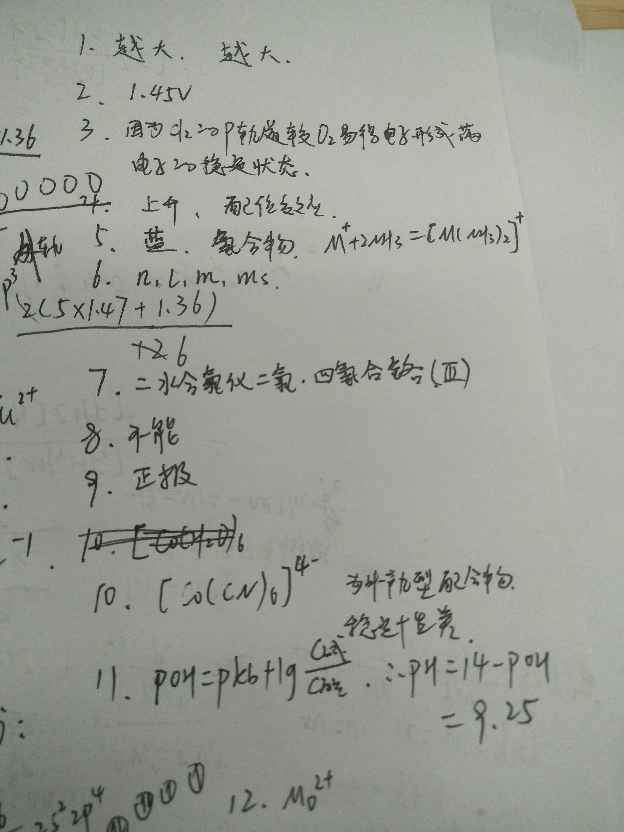 1. 越大. 越大.
2. 1.45V
1.36
3. 因为Cl2的P轨道较O2易得电子形成满
电子的稳定状态.
0 0 0 0 0
4. 上升、配位
5. 蓝. 氨合物. M⁺+2NH3=[M(NH3)2]⁺
P³
6. n, l, m, ms.
2(5×1.47+1.36)
+26
7. 二水合氯化二氯·四氨合(III)
u²⁺
8. 不能
9. 正极
-1
10. [Co(H2O)6
10. [Co(CN)6]⁴⁻ 为外轨型配合物.
稳定性差.
11. pOH=pkb+lg ∴pH=14-pOH
=9.25
2s²2p⁴
12. Mo²⁺